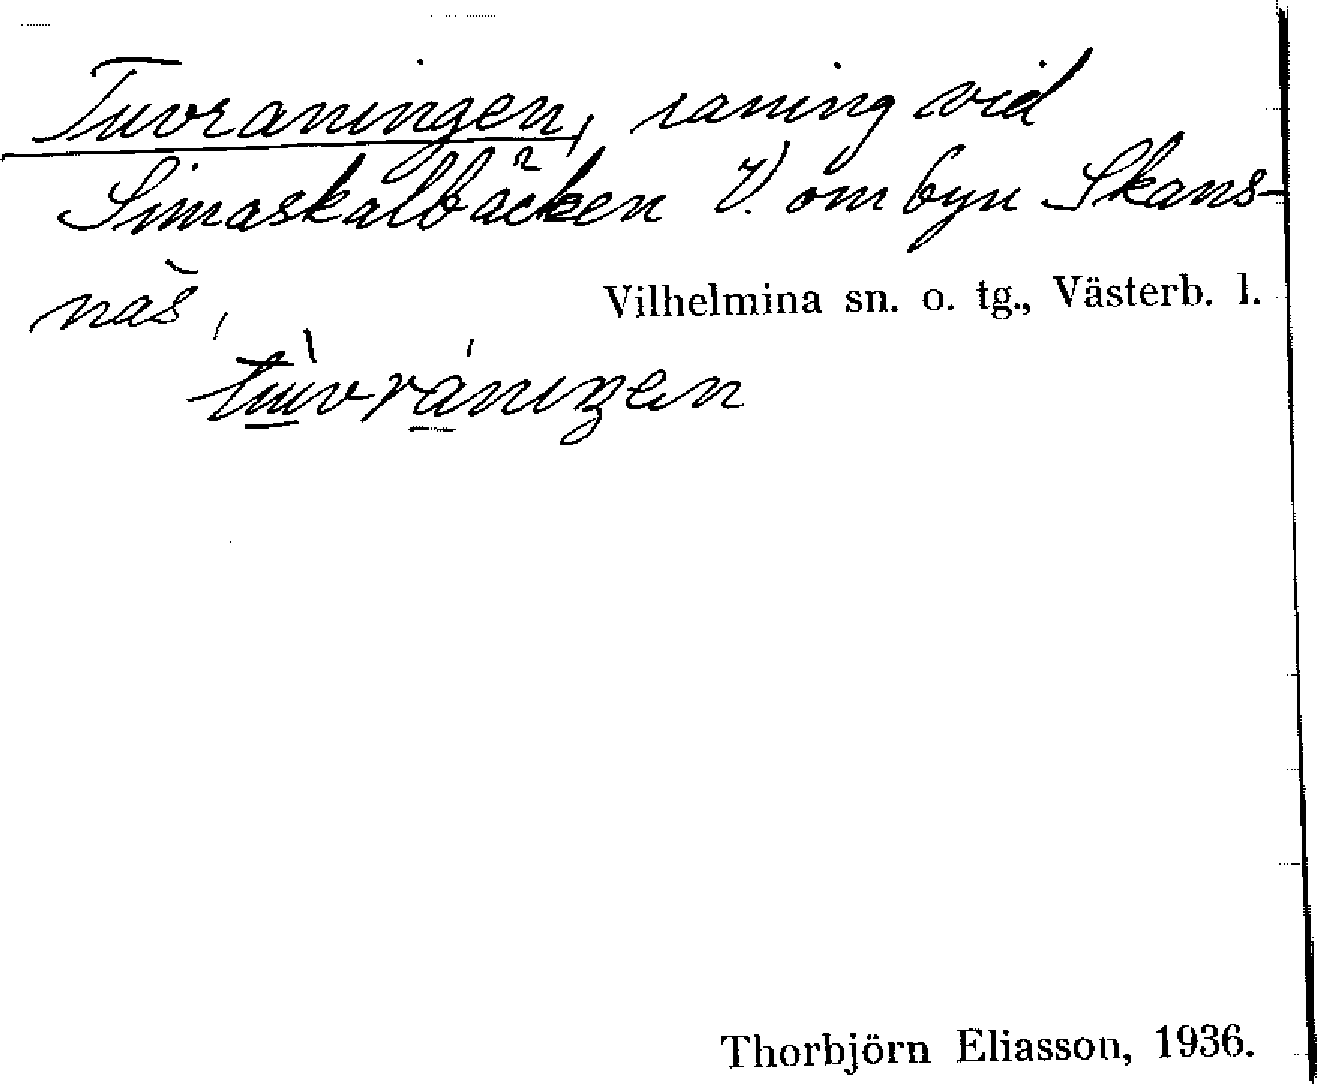 Tuvraningen, raning vid
Simaskalbäcken V. om byn Skans-
näs,
Vilhelmina sn. o. tg., Västerb. l.
Thorbjörn Eliasson, 1936.